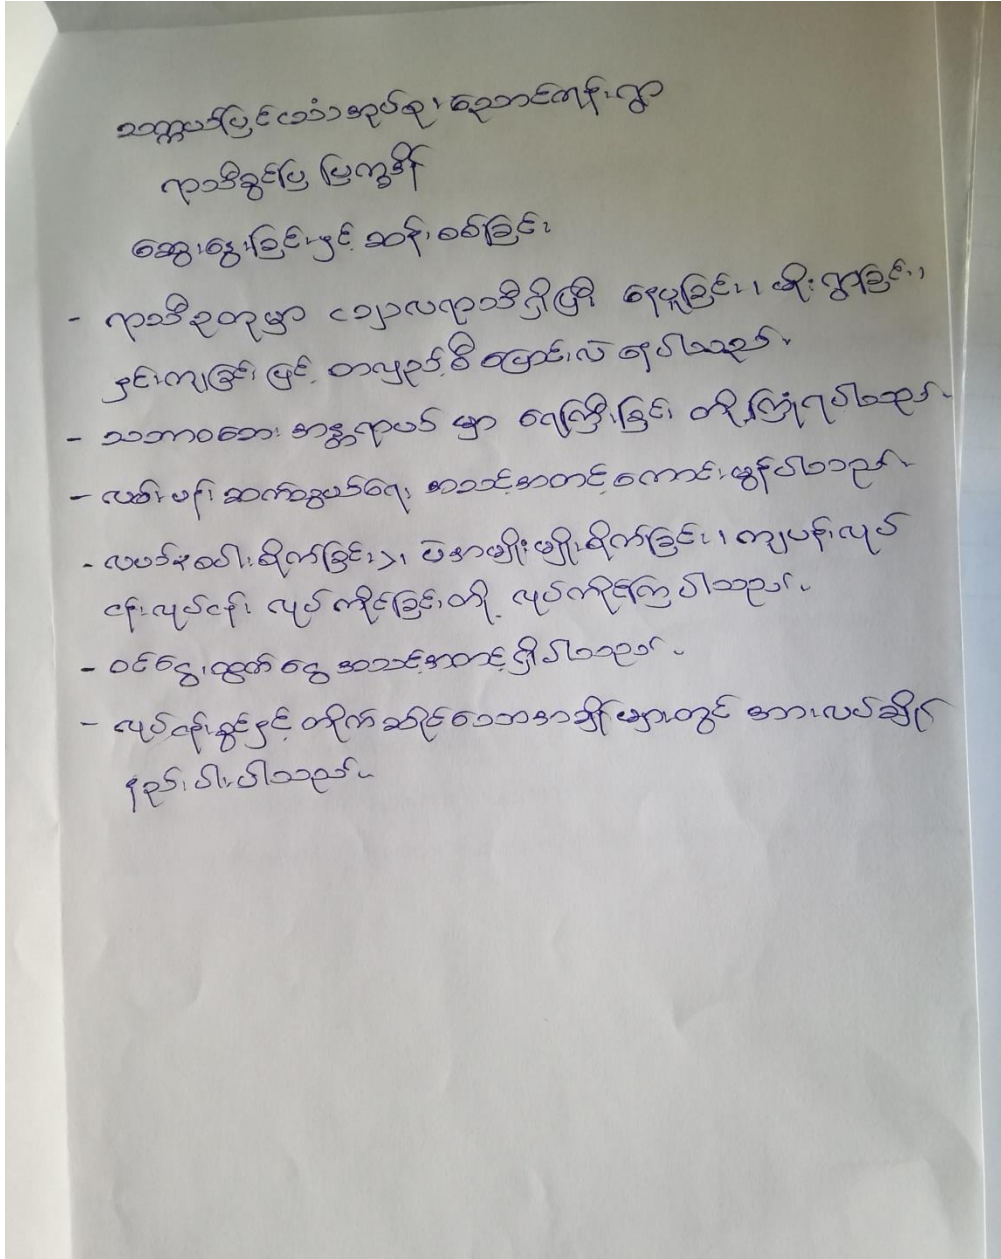 သက္ကယ်ပြင်အုပ်စု၊ ညောင်ကုန်းရွာ
ရာသီခွင်ပြ ပြက္ခဒိန်
ဆွေးနွေးခြင်းနှင့် ဆန်းစစ်ခြင်း
- ရာသီဥတုမှာ ရာသီရှိပြီး နေပူခြင်း၊ မိုးရွာခြင်း၊
နှင်းကျခြင်းဖြင့် တလှည့်စီ ပြောင်းလဲ နေပါသည်။
- သဘာဝဘေး အန္တရာယ် မှာ ရေကြီးခြင်း တို့ကြုံရပါသည်။
- လမ်းပန်း ဆက်သွယ်ရေး အသင့်အတင့် ကောင်းမွန်ပါသည်။
- လယ်ယာစပါးစိုက်ခြင်း၊ ပဲအမျိုးမျိုးစိုက်ခြင်း၊ ကျပန်းလုပ်
ငန်းလုပ်ငန်း လုပ်ကိုင်ခြင်းတို့ လုပ်ကိုင်ကြပါသည်။
- ဝင်ငွေ၊ထွက်ငွေ အသင့်အတင့်ရှိပါသည်။
- လုပ်ငန်းခွင်နှင့် တိုက်ဆိုင်သောအချိန်များတွင် အားလပ်ချိန်
နည်းပါးပါသည်။